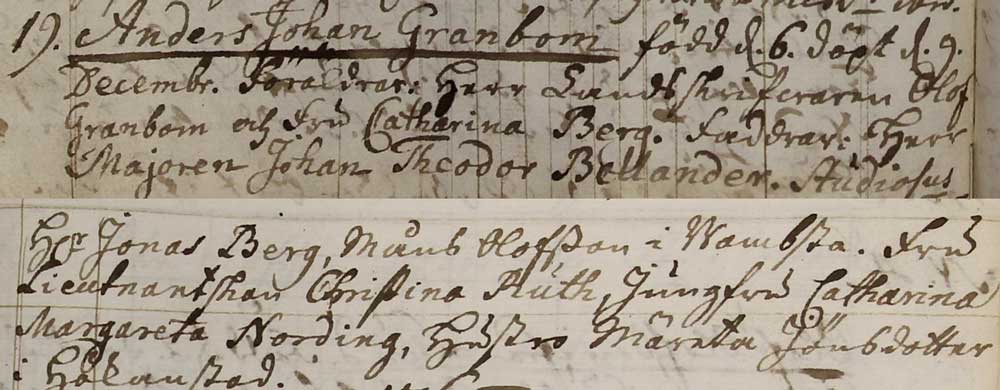 19. Anders Johan Granbom född d. 6. döpt d. 9.
Decembr. Föräldrar: Herr Landsskrifvaren Olof
Granbom och Fru Catharina Berg. Faddrar: Herr
Majoren Johan Theodor Bellander. Studiosus
Hr Jonas Berg, Måns Olofsson i Wambsta. Fru
Lieutnantskan Christina Ruth, Jungfru Catharina
Margareta Nording, Hustro Märeta Jönsdotter
i Hålanstad.